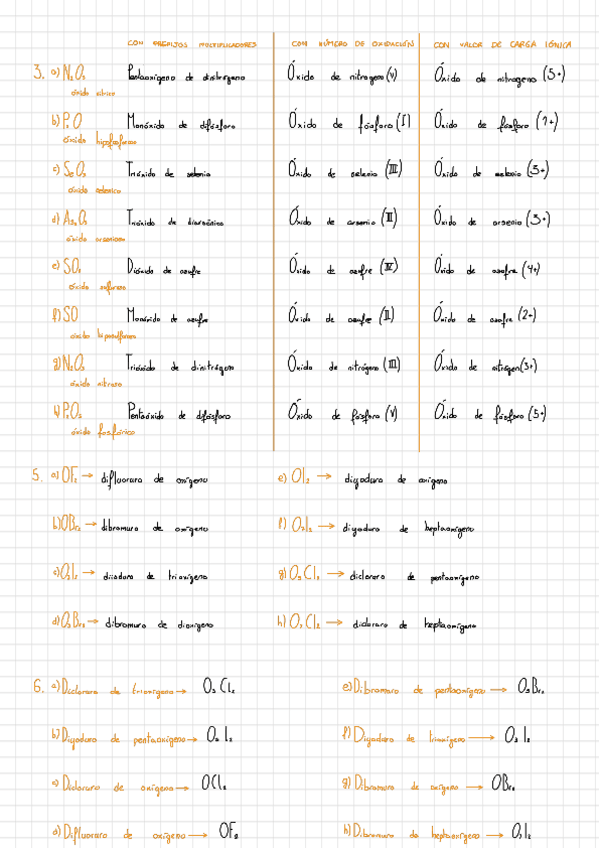 CON PREFIJOS MULTIPLICADORES CON NÚMERO DE OXIDACIÓN CON VALOR DE CARGA IÓNICA
3. a) N₂O₅ Pentaoxígeno de dinitrógeno Óxido de nitrógeno (V) Óxido de nitrógeno (5+)
óxido nítrico
b) P₂O Monóxido de difósforo Óxido de fósforo (I) Óxido de fósforo (1+)
óxido hipofosforoso
c) Trióxido de selenio Óxido de selenio (III) Óxido de selenio (3+)
óxido selenico
d) As₂O₃ Trióxido de diarsénico Óxido de arsenio (III) Óxido de arsenio (3+)
óxido arsenioso
e) SO₂ Dióxido de azufre Óxido de azufre (IV) Óxido de azufre (4+)
óxido sulfuroso
f) SO Monóxido de azufre Óxido de azufre (II) Óxido de azufre (2+)
óxido hiposulfuroso
g) N₂O₃ Trióxido de dinitrógeno Óxido de nitrógeno (III) Óxido de nitrógeno (3+)
óxido nitroso
h) P₂O₅ Pentaóxido de difósforo Óxido de fósforo (V) Óxido de fósforo (5+)
óxido fosfórico
5. a) OF₂ → difluoruro de oxígeno e) OI₂ → diyoduro de oxígeno
b) OBr₂ → dibromuro de oxígeno f) O₇I₂ → diyoduro de heptaoxígeno
c) O₃I₂ → diioduro de trioxígeno g) O₅Cl₂ → dicloruro de pentaoxígeno
d) → dibromuro de dioxígeno h) O₇Cl₂ → dicloruro de heptaoxígeno
6. a) Dicloruro de trioxígeno → O₃Cl₂ e) Dibromuro de pentaoxígeno → O₅Br₂
b) Diyoduro de pentaoxígeno → f) Diyoduro de trioxígeno → O₃I₂
c) Dicloruro de oxígeno → OCl₂ g) Dibromuro de oxígeno → OBr₂
d) Difluoruro de oxígeno → OF₂ h) Dibromuro de heptaoxígeno → O₇I₂